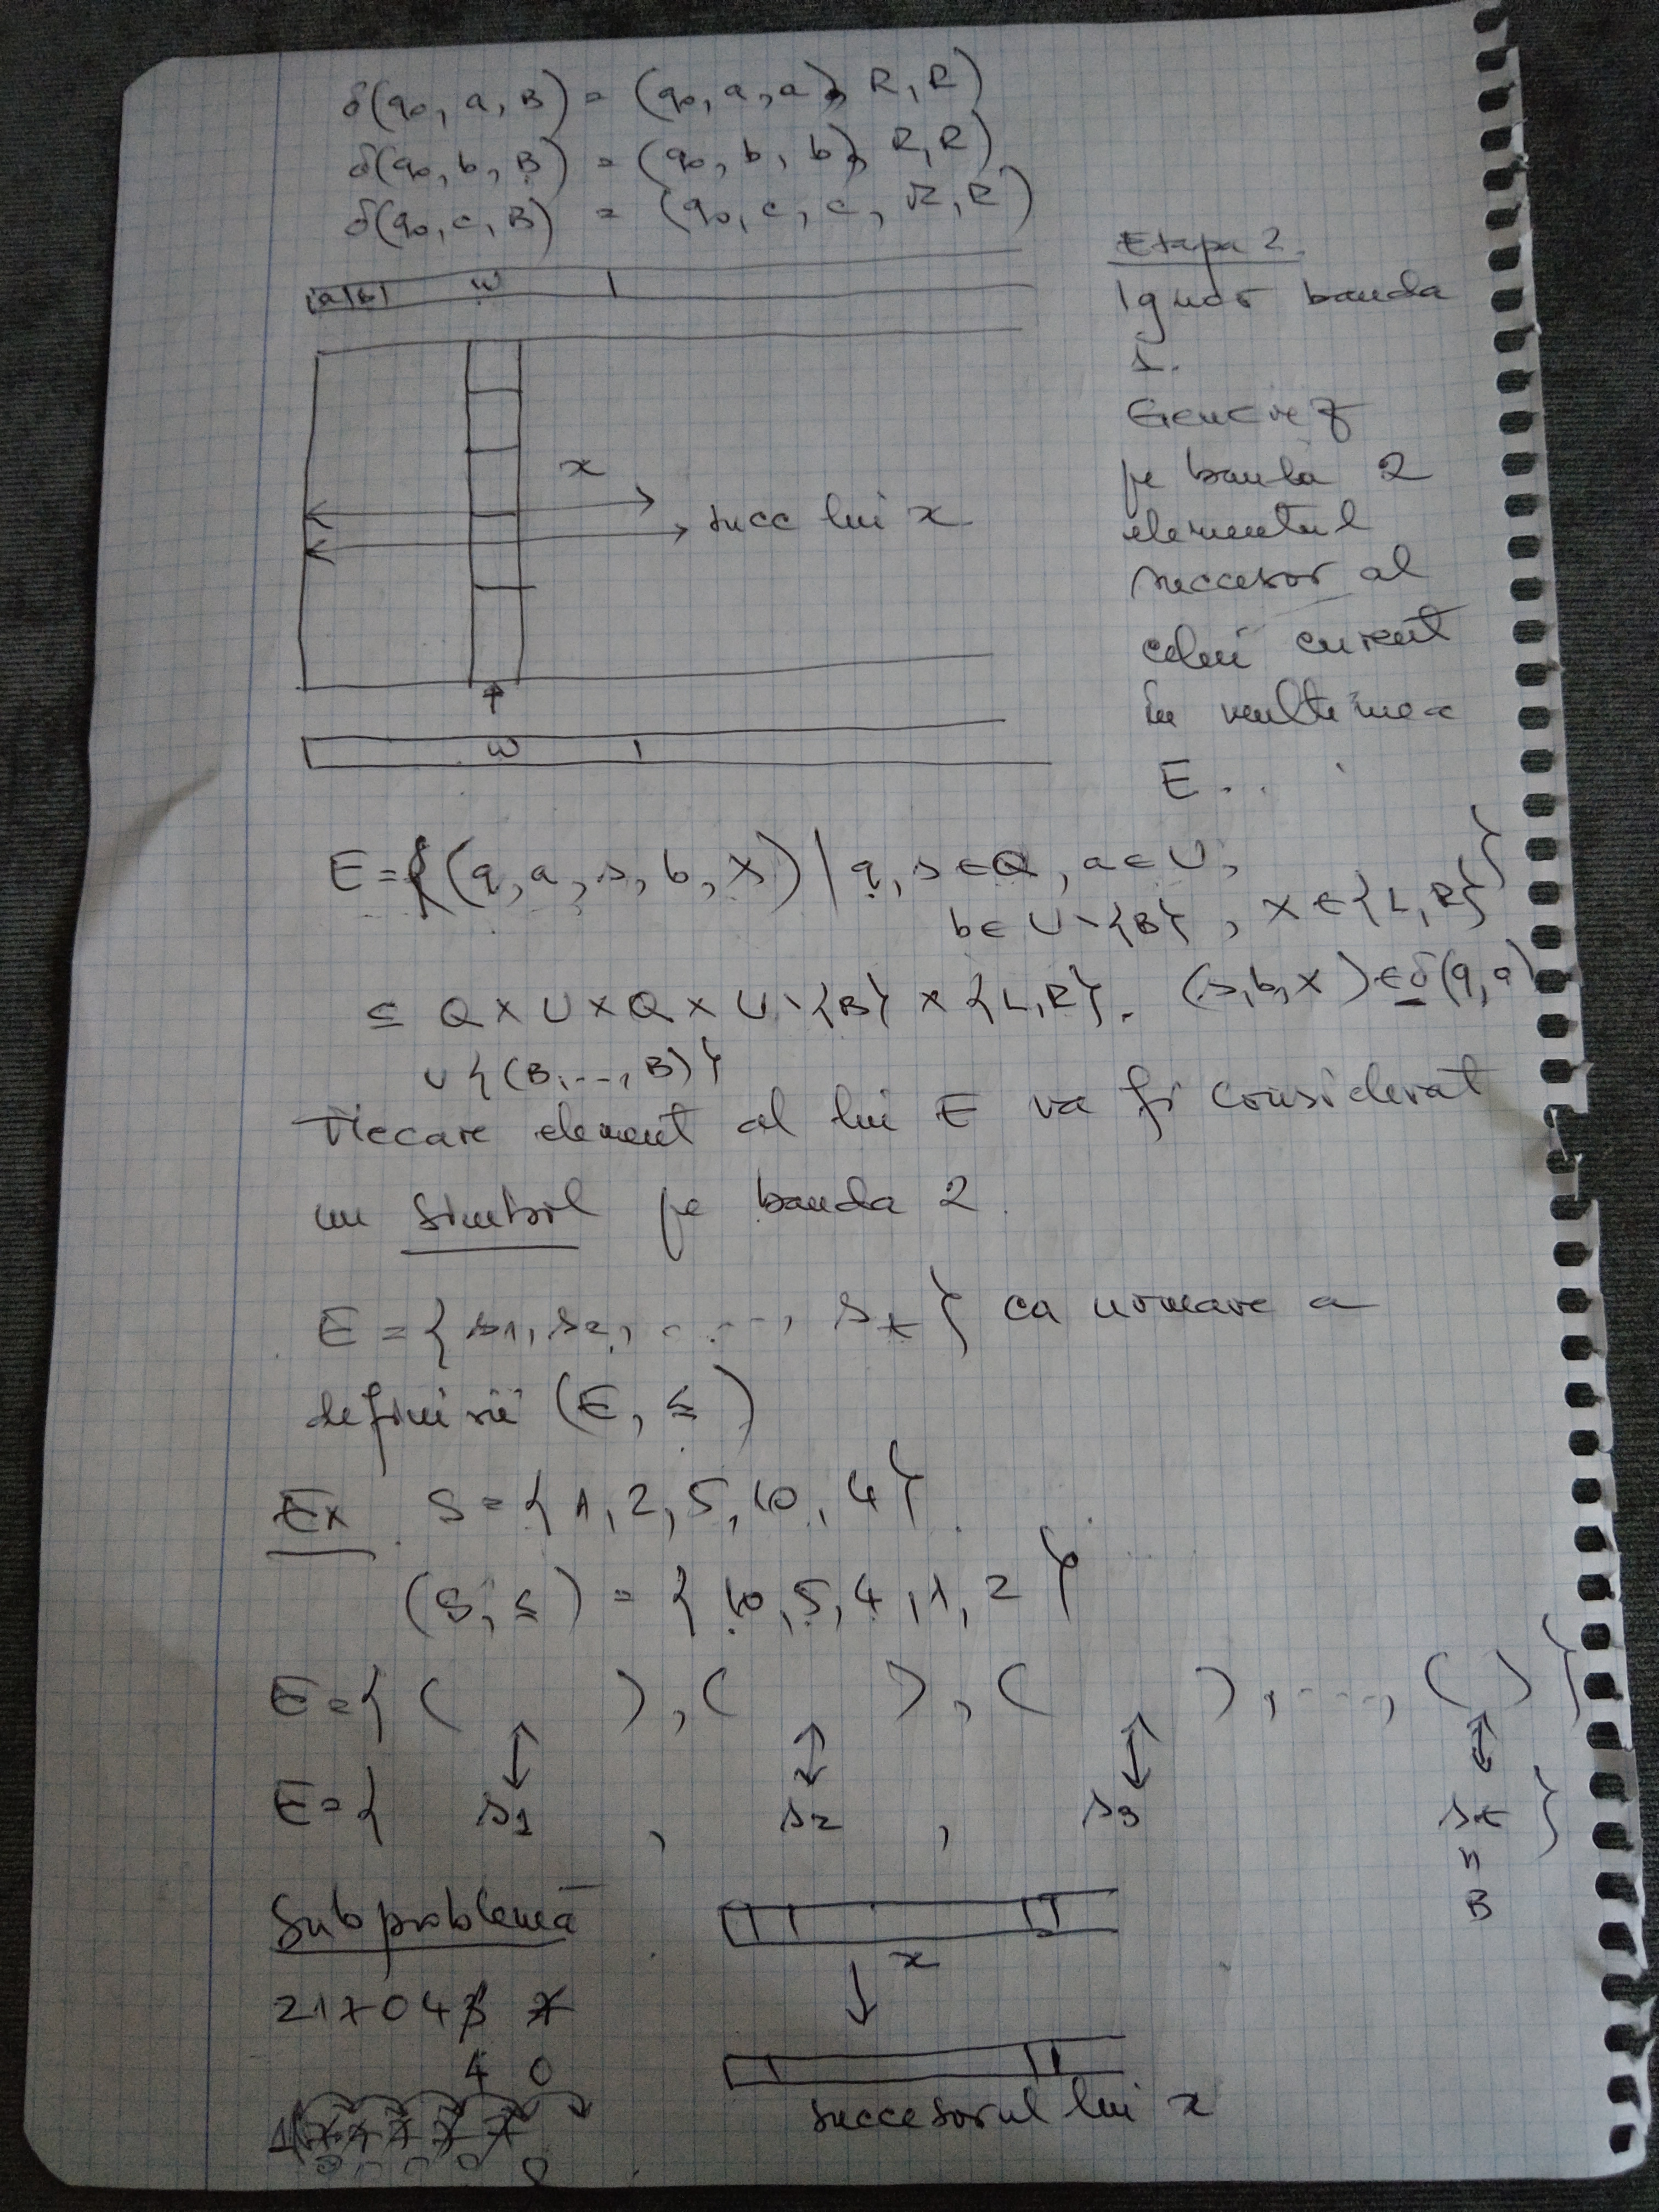 δ(q₀, a, B) = (q₀, a, a, R, R)
δ(q₀, b, B) = (q₀, b, b, R, R)
δ(q₀, c, B) = (q₀, c, c, R, R)
|a|b| w
Etapa 2.
Ignor banda
1.
Generez
pe banda 2
elementul
succesor al
celui curent
în multimea
E.
x
succ lui x
w
E = {(q, a, s, b, X) | q, s ∈ Q, a ∈ U,
b ∈ U \ {B}, X ∈ {L, R}}
⊆ Q × U × Q × U \ {B} × {L, R}. (s, b, X) ∈ δ(q, a)
∪ {(B, ..., B)}
Fiecare element al lui E va fi considerat
un simbol pe banda 2.
E = {s₁, s₂, ..., s_t} ca urmare a
definirii (E, ≤)
Ex. S = {1, 2, 5, 10, 4}
(S, ≤) = {10, 5, 4, 1, 2}
E = {( ), ( ), ( ), ..., ( )}
E = { s₁ , s₂ , s₃ s_t }
"
B
Subproblemă
x
217043 7
4 0
succesorul lui x